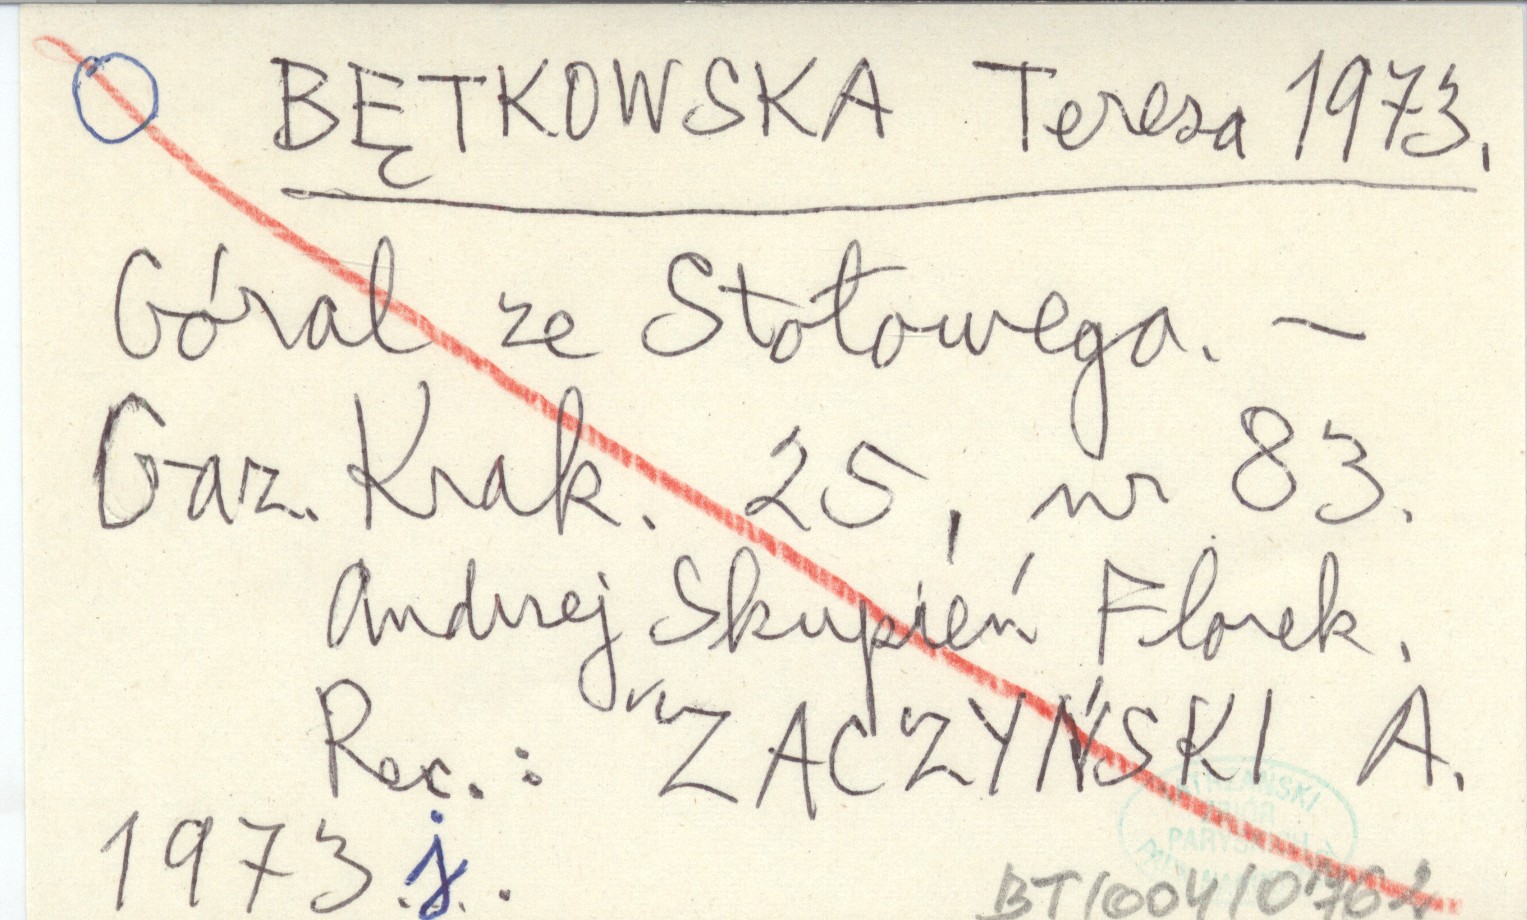 BĘTKOWSKA Teresa 1973.
Góral ze Stołowega. —
Gaz. Krak. 25, nr 83.
Andrzej Skupień Florek.
Rec.: ZACZYŃSKI A.
1973 j.
BT/004/0762